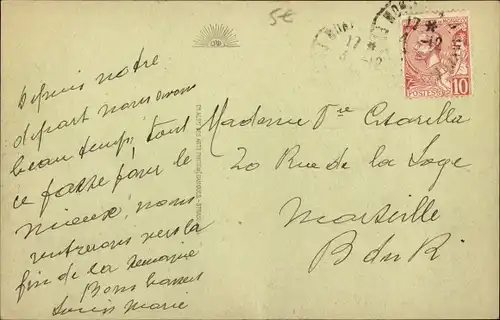 5€
Depuis notre
départ nous avons
beau temps, tout
ce passe pour le
mieux, nous
rentrerons vers la
fin de la semaine
Bons baisers
Louis Marie
17 *
17 *
POSTES 10
Madame Vve Citarella
20 Rue de la Loge
Marseille
B du R